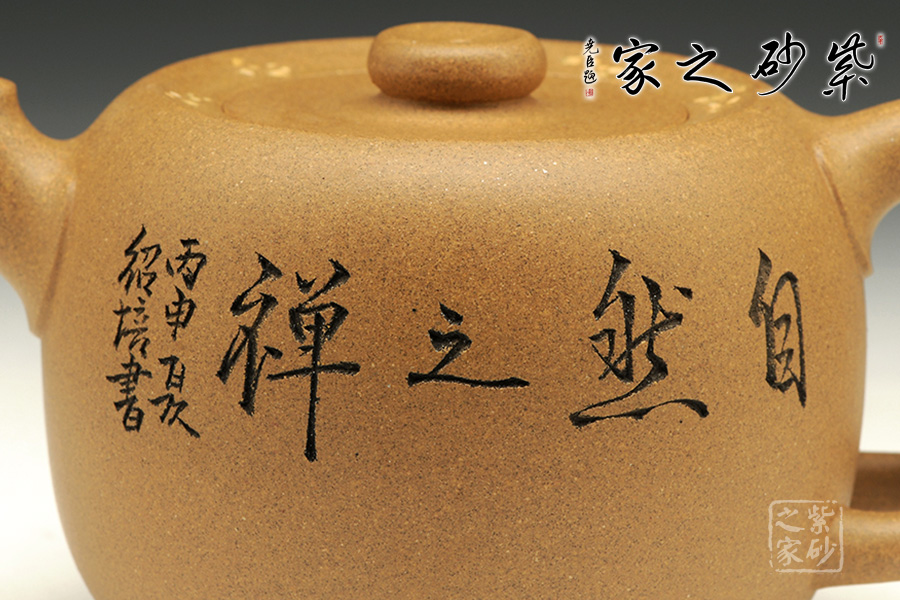 紫砂之家
尧臣题
自然之禅
丙申夏
绍培書
紫砂之家